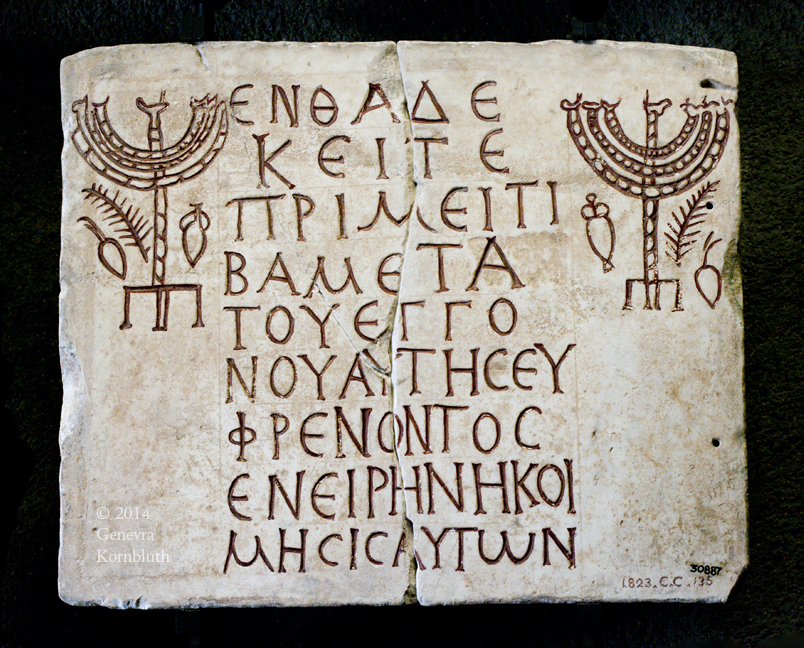 ΕΝΘΑΔΕ
ΚΕΙΤΕ
ΠΡΙΜΕΙΤΙ
ΒΑΜΕΤΑ
ΤΟΥΕΓΓΟ
ΝΟΥΑΥΤΗϹΕΥ
ΦΡΕΝΟΝΤΟϹ
ΕΝΕΙΡΗΝΗΚΟΙ
ΜΗϹΙϹΑΥΤΩΝ
© 2014
Genevra
Kornbluth
30887
1823.C.C.135